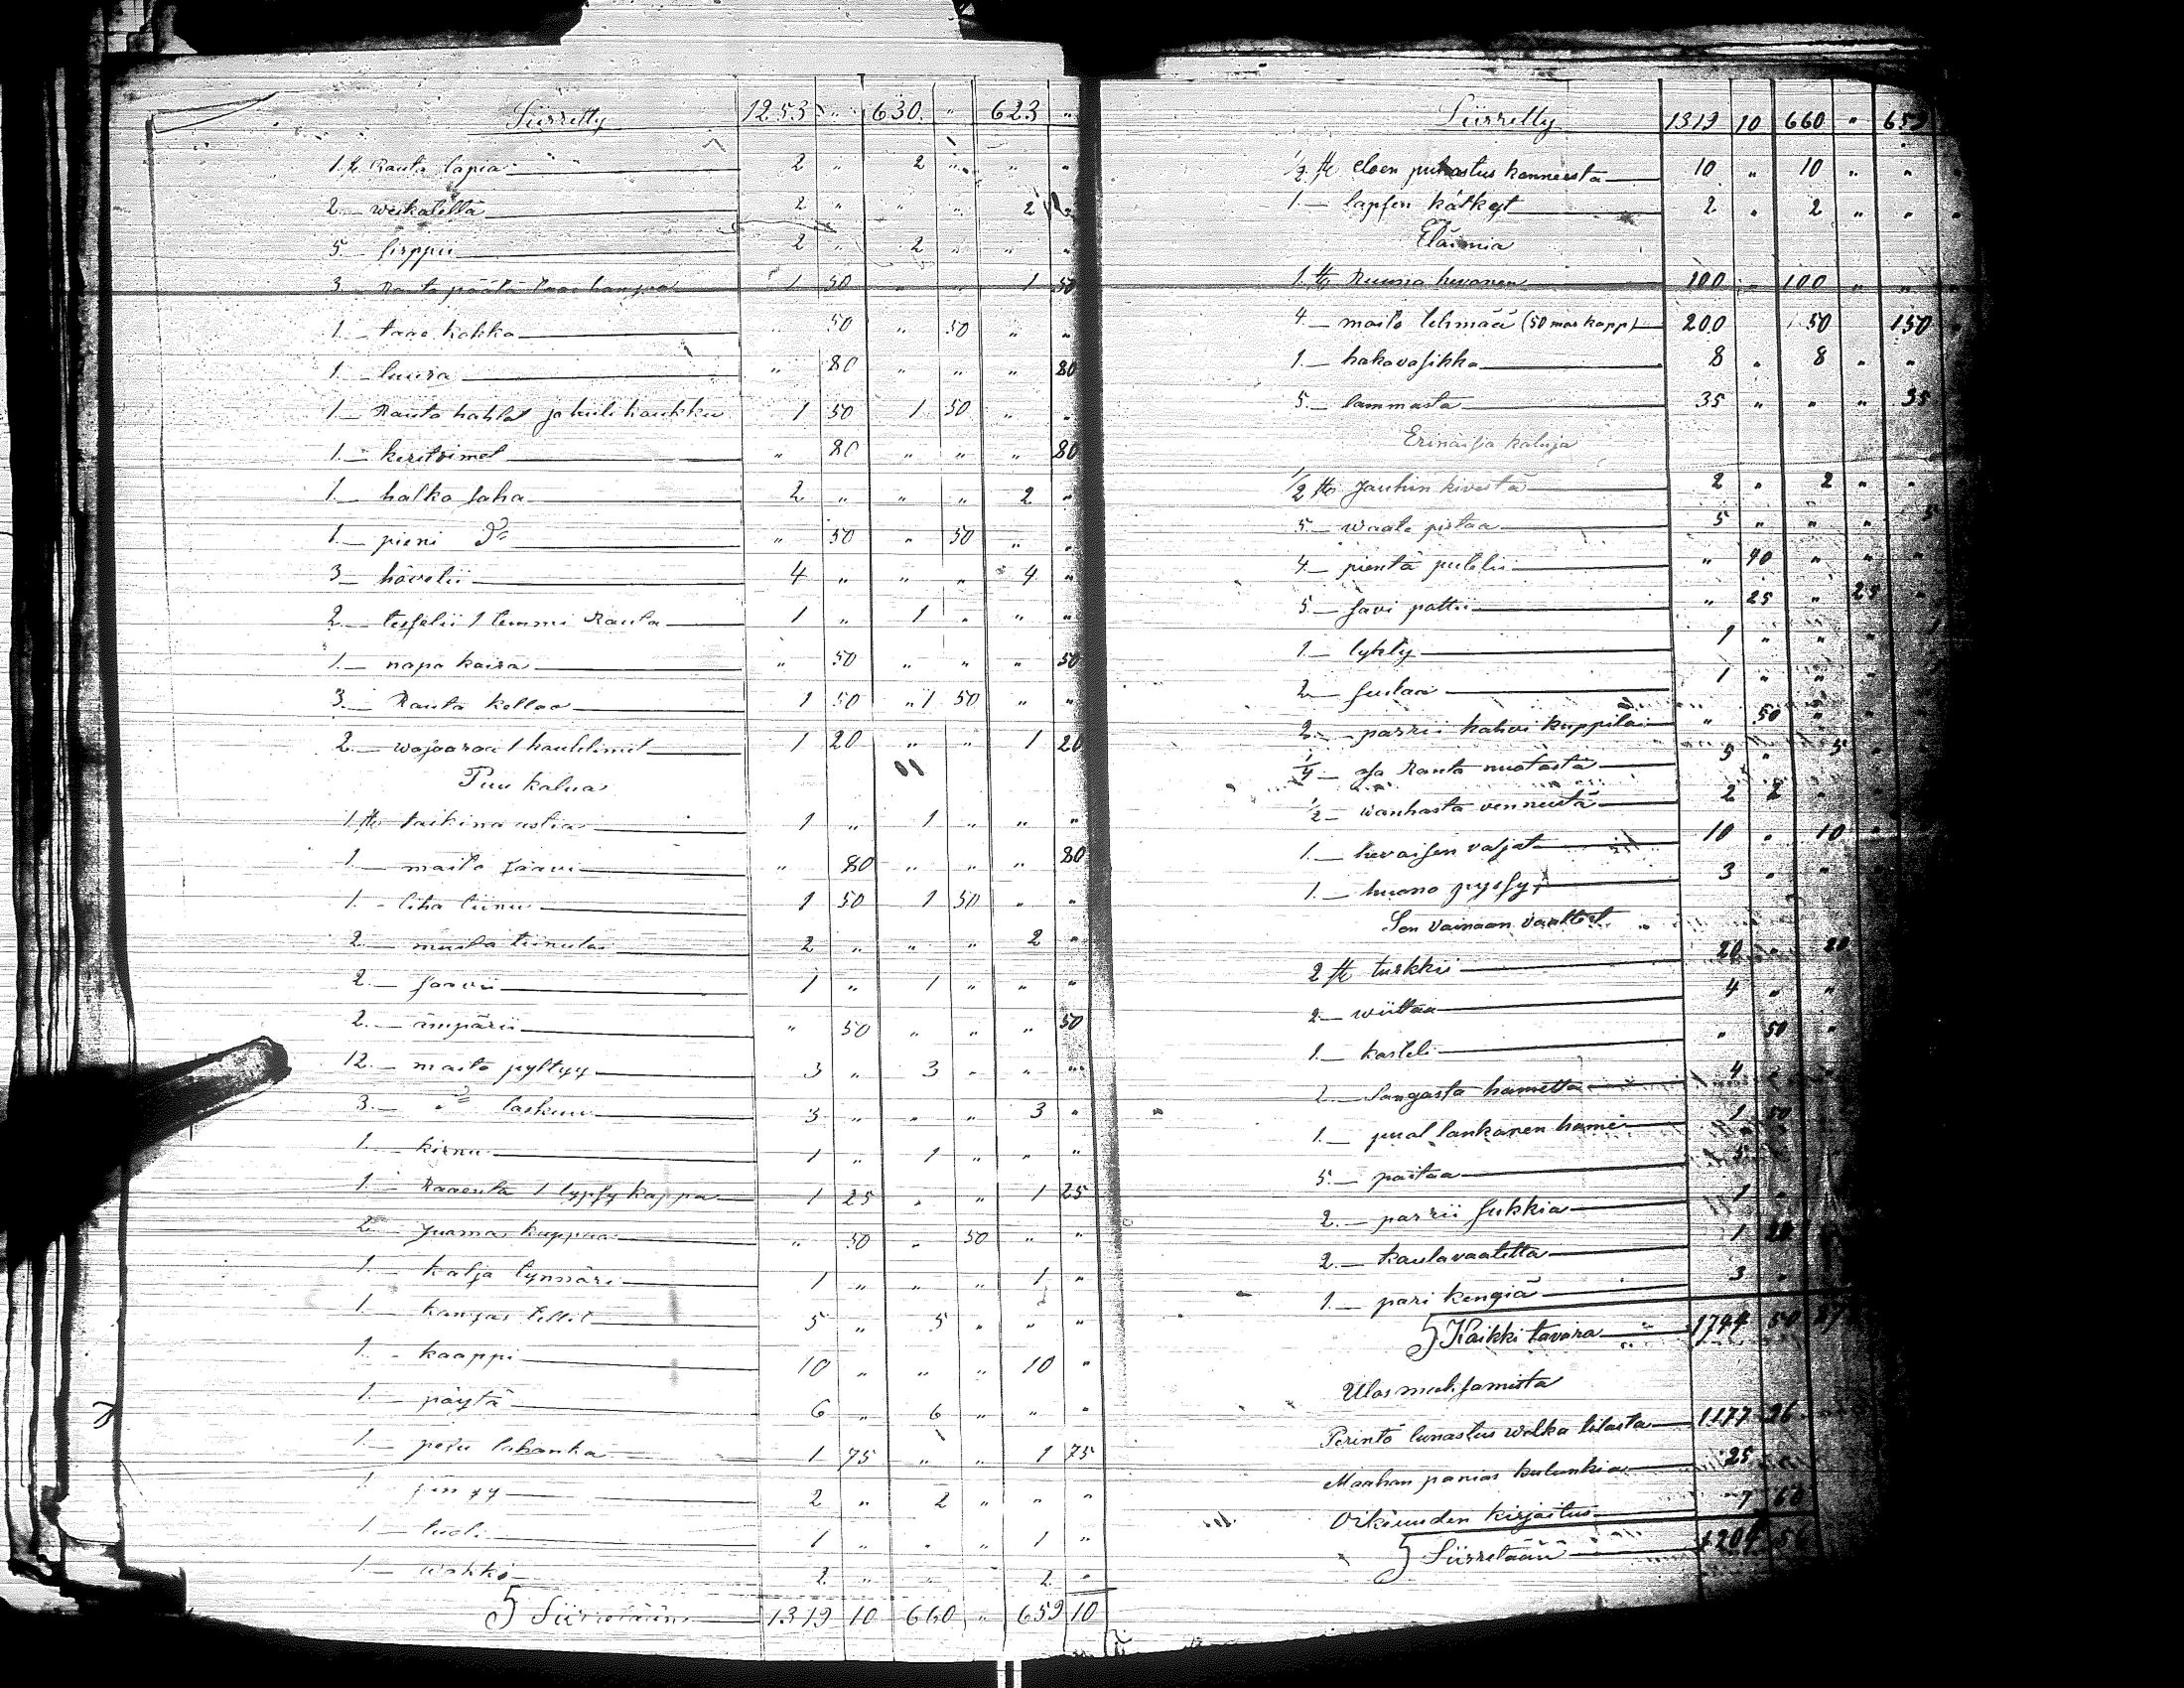 Siirretty 1253 " 630 " 623 "
1 st Rauta lapia 2 " 2 " " "
2 — weikatetta 2 " " " 2 "
5 — sirppii 2 " 2 " " "
3 — Rauta päätä taas hanjoa 1 50 " " 1 50
1 — taao kokka " 50 " 50 " "
1 — luura " 80 " " " 80
1 — Rauta hahlat ja huli haukku 1 50 1 50 " "
1 — keritoimet " 80 " " " 80
1 — halko saha 2 " " " 2 "
1 — pieni Do " 50 " 50 " "
3 — hövelii 4 " " " 4 "
2 — tessolii 1 temmi Rauta 1 " 1 " " "
1 — napa kaira " 50 " " " 50
3 — Rauta kollaa 1 50 " 1 50 " "
2 — wasaaraa 1 hauklimet 1 20 " " 1 20
Puu kalua
1 st taikina astia 1 " 1 " " "
1 — maito saavi " 80 " " " 80
1 — liha tiinu 1 50 1 50 " "
2 — muita tiinula 2 " " " 2 "
2 — saavii 1 " 1 " " "
2 — ämpärii " 50 " " " 50
12 — maito pyttyy 3 " 3 " " "
3 — Do laskuu 3 " " " 3 "
1 — kirnu 1 " 1 " " "
1 — Raaenta 1 lypsy kappa 1 25 " " 1 25
2 — Juama kuppia " 50 " 50 " "
1 — kalja tynnäri 1 " " " 1 "
1 — kangas tellit 5 " 5 " " "
1 — kaappi 10 " " " 10 "
1 — pöytä 6 " 6 " " "
1 — pesu lahanka 1 75 " " 1 75
1 — 2 " 2 " " "
1 — tuoli 1 " " " 1 "
1 — wakka 2 " " " 2 "
Siirretään 1319 10 660 " 659 10
Siirretty 1319 10 660 " 659
1/2 st eloen puhastus konneesta 10 " 10 " " "
1 — lapsen kätkyt 2 " 2 " " "
Eläimia
1 st Ruuna hevonen 100 " 100 " " "
4 — maito lehmää (50 mar kapp) 200 50 150 "
1 — hakavasikka 8 " 8 " "
5 — lammasta 35 " " " 35
Erinäisiä kaluja
1/2 st Jauhin kivistä 2 " 2 " "
5 — waate pistaa 5 " " " 5
4 — pientä pullii " 40 " " "
5 — savi pattii " 25 " 25 "
1 — lykty 1 " " " 1
2 — 1 " "
2 — parrii kahvi kuppila " 50 " "
1/4 — osa Ranta nuatasta 5 " 5 "
1/2 — wanhasta venneestä 2 2
1 — hevoisen valjat 10 " 10 "
1 — huono pyssy 3 " "
Sen vainaan vaatteet
2 st turkkii 20 " 20
2 — wiittaa 4 " "
1 — kasteli " 50 "
2 — Sangasta hametta 4
1 — pual lankanen hame 1 50
5 — paitaa 5
2 — parrii sukkia 1 "
2 — kaulavaatetta 1 20
1 — pari kengiä 3 "
Kaikki tavara 1744 50
Ulos maksamista
Perintö lunastus welka tilasta 1177 26
Maahan panias kulunkia 25 "
Oikeuuden kirjaitus 7 60
Siirretään 1209 56